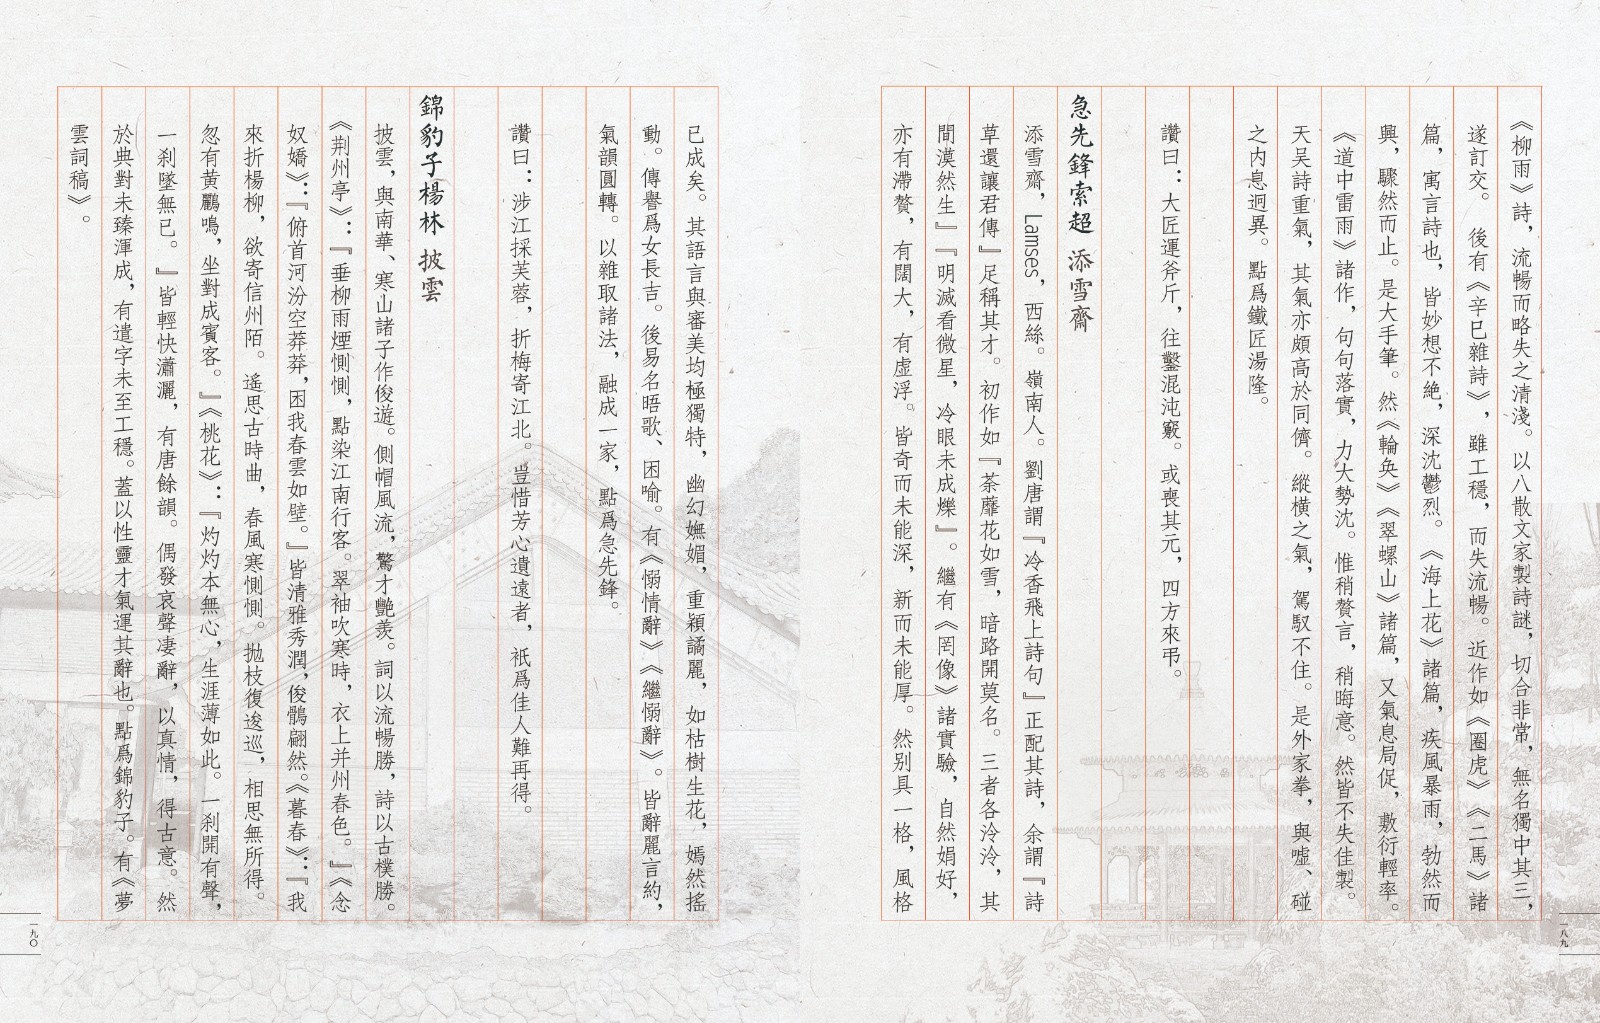 《柳雨》詩，流暢而略失之清淺。以八散文家製詩謎，切合非常，無名獨中其三，
遂訂交。後有《辛巳雜詩》，雖工穩，而失流暢。近作如《圈虎》《二馬》諸
篇，寓言詩也，皆妙想不絶，深沈鬱烈。《海上花》諸篇，疾風暴雨，勃然而
興，驟然而止。是大手筆。然《輪奐》《翠螺山》諸篇，又氣息局促，敷衍輕率。
《道中雷雨》諸作，句句落實，力大勢沈。惟稍贅言，稍晦意。然皆不失佳製。
天吴詩重氣，其氣亦頗高於同儕。縱橫之氣，駕馭不住。是外家拳，與噓、碰
之内息迥異。點爲鐵匠湯隆。
讚曰：大匠運斧斤，往鑿混沌竅。或喪其元，四方來弔。
急先鋒索超 添雪齋
添雪齋，Lamses，西絲。嶺南人。劉唐謂『冷香飛上詩句』正配其詩，余謂『詩
草還讓君傳』足稱其才。初作如『荼蘼花如雪，暗路開莫名。三者各泠泠，其
間漠然生』『明滅看微星，冷眼未成爍』。繼有《罔像》諸實驗，自然娟好，
亦有滯贅，有闊大，有虛浮。皆奇而未能深，新而未能厚。然别具一格，風格
已成矣。其語言與審美均極獨特，幽幻嫵媚，重穎譎麗，如枯樹生花，嫣然搖
動。傳譽爲女長吉。後易名晤歌、困喻。有《惱情辭》《繼惱辭》。皆辭麗言約，
氣韻圓轉。以雜取諸法，融成一家，點爲急先鋒。
讚曰：涉江採芙蓉，折梅寄江北。豈惜芳心遺遠者，祇爲佳人難再得。
錦豹子楊林 披雲
披雲，與南華、寒山諸子作俊遊。側帽風流，驚才艷羡。詞以流暢勝，詩以古樸勝。
《荆州亭》：『垂柳雨煙惻惻，點染江南行客。翠袖吹寒時，衣上并州春色。』《念
奴嬌》：『俯首河汾空莽莽，困我春雲如壁。』皆清雅秀潤，俊鶻翩然。《暮春》：『我
來折楊柳，欲寄信州陌。遙思古時曲，春風寒惻惻。拋枝復逡巡，相思無所得。
忽有黃鸝鳴，坐對成賓客。』《桃花》：『灼灼本無心，生涯薄如此。一刹開有聲，
一刹墜無已。』皆輕快瀟灑，有唐餘韻。偶發哀聲凄辭，以真情，得古意。然
於典對未臻渾成，有遣字未至工穩。蓋以性靈才氣運其辭也。點爲錦豹子。有《夢
雲詞稿》。
一八九
一九〇